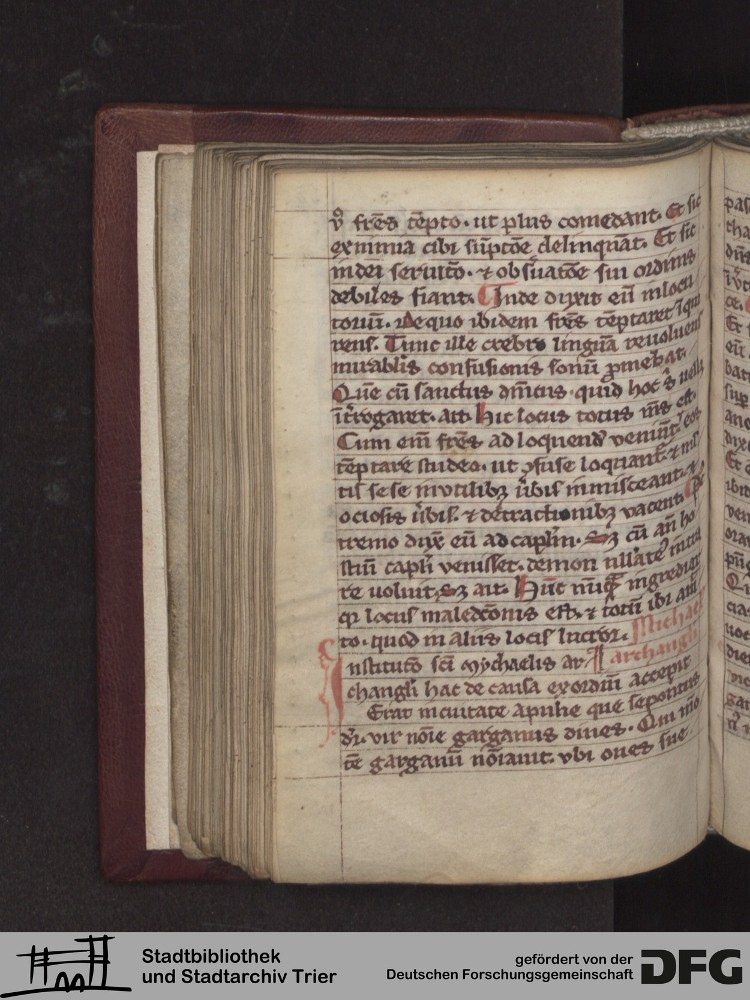 v̊ frēs tēpto. ut plus comedant. Et sic
ex nimia cibi sūptōe delinquāt. Et sic
in dei seruitō. ⁊ obsuatōe sui ordinis
debiles fiant. Inde dixit eū in locu
toriū. De quo ibidem frēs tēptaret īqui
rens. Tunc ille crebro linguā reuoluens
mirablis confusionis sonū ꝓmebat.
Quē cū sanctus dnīcus quid hoc s̄ uell
īt̄rogaret. ait. Hic locus totus ms̄ est.
Cum em̄ frēs ad loquend ueniūt. eos
tēptare studeo. ut ꝯfuse loquant̄. ⁊
tis sese inutilibꝫ ūbis inmisceant. ⁊
ociosis ūbis. ⁊ detractionibꝫ vacent.
tremo duxit eū ad caplm̄. Sꝫ cū an̄ ho
stiū capli venisset. demon nllatē intra
re uoluit. Sꝫ ait. Hūc nūqͣ ingrediar
qꝛ locus maledcōnis est. ⁊ totū ibi amit
to. quod in aliis locis luctor. Michael
Institutō scī mychaelis ar archangli
changli hac de causa exordiū accepit
Erat in ciuitate apulie que sepontus
dr̄. vir nōie garganus diues. Qui mō
tē garganū nōiauit. vbi oues sue
Stadtbibliothek
und Stadtarchiv Trier
gefördert von der
Deutschen Forschungsgemeinschaft
DFG